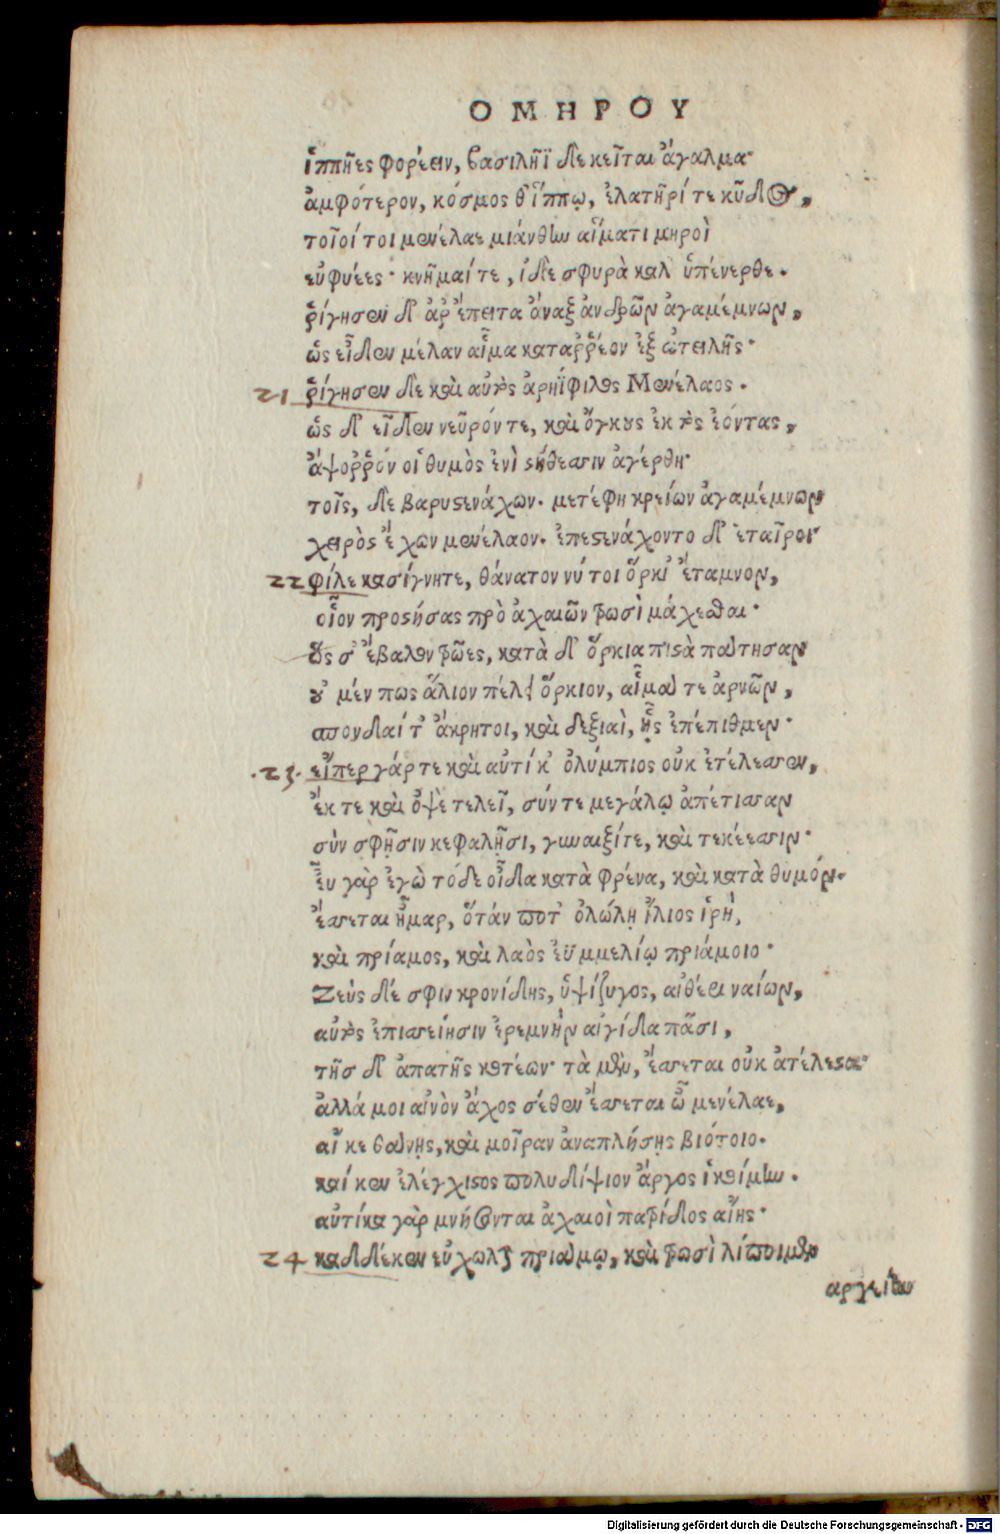 ΟΜΗΡΟΥ
ἱππῆες φορέειν, βασιλῆϊ δὲ κεῖται ἄγαλμα·
ἀμφότερον, κόσμος θ' ἵππῳ, ἐλατῆρί τε κῦδος,
τοῖοί τοι μενέλαε μιάνθην αἵματι μηροὶ
εὐφυέες· κνῆμαί τε, ἰδὲ σφυρὰ καλ' ὑπένερθε.
ῥίγησεν δ' ἀρ' ἔπειτα ἄναξ ἀνδρῶν ἀγαμέμνων,
ὡς εἶδεν μέλαν αἷμα καταῤῥέον ἐξ ὠτειλῆς·
21 ῥίγησεν δὲ καὶ αὐτὸς ἀρηΐφιλος Μενέλαος.
ὡς δ' εἶδεν νεῦρόν τε, καὶ ὄγκους ἐκτὸς ἐόντας,
ἄψοῤῥόν οἱ θυμὸς ἐνὶ στήθεσσιν ἀγέρθη·
τοῖς, δὲ βαρυστενάχων. μετέφη κρείων ἀγαμέμνων
χειρὸς ἔχων μενέλαον. ἐπεστενάχοντο δ' ἑταῖροι·
22 φίλε κασίγνητε, θάνατον νύ τοι ὅρκι' ἔταμνον,
οἷον προστήσας πρὸ ἀχαιῶν τρωσὶ μάχεσθαι·
ὥς σ' ἔβαλον τρῶες, κατὰ δ' ὅρκια πιστὰ πάτησαν
οὐ μέν πως ἅλιον πέλει ὅρκιον, αἷμά τε ἀρνῶν,
σπονδαί τ' ἄκρητοι, καὶ δεξιαὶ, ᾗς ἐπέπιθμεν·
·23· εἴπερ γάρ τε καὶ αὐτίκ' ὀλύμπιος οὐκ ἐτέλεσσεν,
ἔκ τε καὶ ὀψὲ τελεῖ, σύν τε μεγάλῳ ἀπέτισαν
σὺν σφῇσιν κεφαλῇσι, γυναιξίτε, καὶ τεκέεσσιν·
εὖ γὰρ ἐγὼ τόδε οἶδα κατὰ φρένα, καὶ κατὰ θυμόν.
ἔσσεται ἦμαρ, ὅτάν ποτ' ὀλώλῃ ἴλιος ἱρὴ,
καὶ πρίαμος, καὶ λαὸς ἐϋμμελίῳ πριάμοιο·
Ζεὺς δέ σφιν κρονίδης, ὑψίζυγος, αἰθέρι ναίων,
αὐτὸς ἐπισσείησιν ἐρεμνὴν αἰγίδα πᾶσι,
τῆσ δ' ἀπατῆς κοτέων· τὰ μὲν, ἔσσεται οὐκ ἀτέλεστα·
ἀλλά μοι αἰνὸν ἄχος σέθεν ἔσσεται ὦ μενέλαε,
αἴ κε θάνῃς, καὶ μοῖραν ἀναπλήσῃς βιότοιο.
καί κεν ἐλέγχιστος πολυδίψιον ἄργος ἱκοίμην.
αὐτίκα γὰρ μνήσονται ἀχαιοὶ πατρίδος αἴης·
24 καδδέκεν εὐχωλὴν πριάμῳ, καὶ τρωσὶ λίποιμεν
αργείην
Digitalisierung gefördert durch die Deutsche Forschungsgemeinschaft - DFG